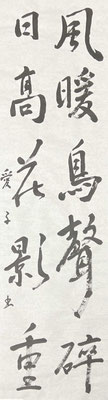 風暖鳥聲碎
日高花影重
愛子書